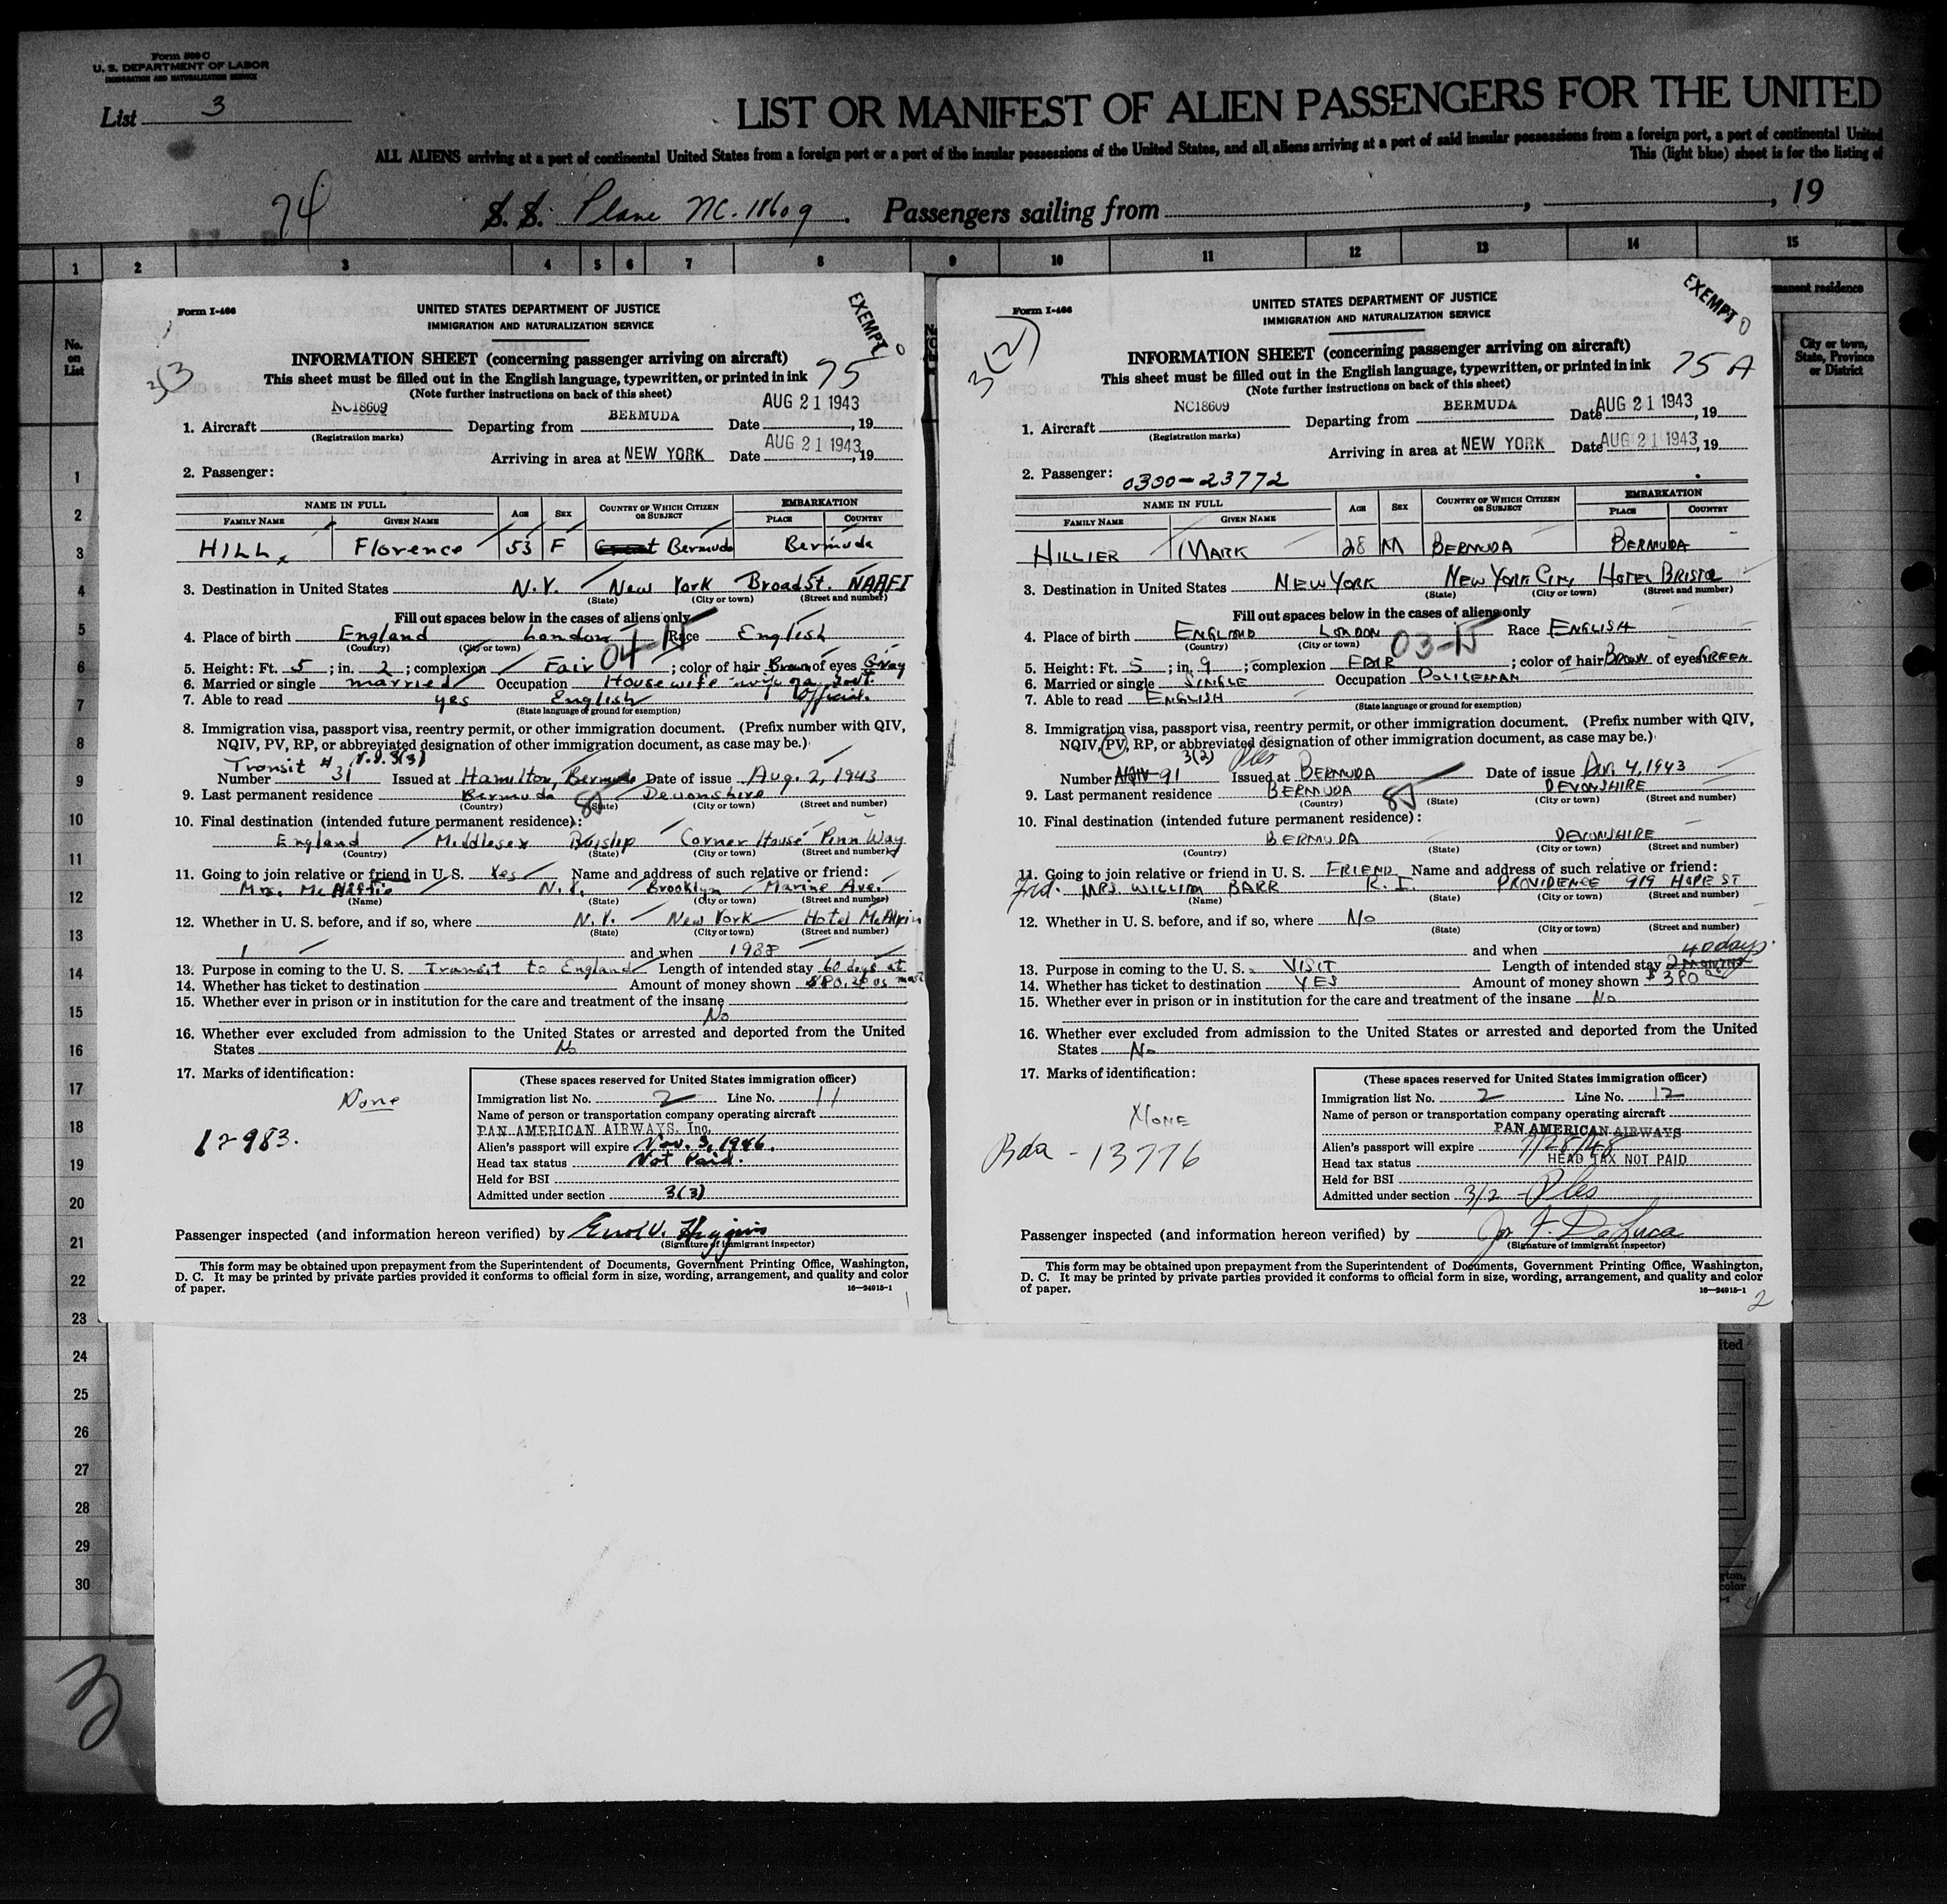 Form 500 C
U. S. DEPARTMENT OF LABOR
IMMIGRATION AND NATURALIZATION SERVICE
List 3
LIST OR MANIFEST OF ALIEN PASSENGERS FOR THE UNITED
ALL ALIENS arriving at a port of continental United States from a foreign port or a port of the insular possessions of the United States, and all aliens arriving at a port of said insular possessions from a foreign port, a port of continental United
This (light blue) sheet is for the listing of
74 S. S. Plane NC. 18609. Passengers sailing from , , 19
1 2 3 4 5 6 7 8 9 10 11 12 13 14 15
No. on List
manent residence
City or town, State, Province or District
1
2
3
4
5
6
7
8
9
10
11
12
13
14
15
16
17
18
19
20
21
22
23
24
25
26
27
28
29
30
3
Form I-466
UNITED STATES DEPARTMENT OF JUSTICE
IMMIGRATION AND NATURALIZATION SERVICE
EXEMPT
INFORMATION SHEET (concerning passenger arriving on aircraft)
This sheet must be filled out in the English language, typewritten, or printed in ink 75
(Note further instructions on back of this sheet)
1. Aircraft NC18609 Departing from BERMUDA Date AUG 21 1943, 19
(Registration marks)
Arriving in area at NEW YORK Date AUG 21 1943, 19
2. Passenger:
NAME IN FULL AGE SEX COUNTRY OF WHICH CITIZEN OR SUBJECT EMBARKATION
FAMILY NAME GIVEN NAME PLACE COUNTRY
HILL Florence 53 F Bermuda Bermuda
3. Destination in United States N.Y. New York Broad St. NAAFI
(State) (City or town) (Street and number)
Fill out spaces below in the cases of aliens only
4. Place of birth England London Race English
(Country) (City or town) 04-15
5. Height: Ft. 5; in. 2; complexion Fair; color of hair Brown of eyes Gray
6. Married or single married Occupation Housewife wife of a Govt. Official.
7. Able to read yes English
(State language or ground for exemption)
8. Immigration visa, passport visa, reentry permit, or other immigration document. (Prefix number with QIV,
NQIV, PV, RP, or abbreviated designation of other immigration document, as case may be.)
Transit # 3(3)
Number 31 Issued at Hamilton, Bermuda Date of issue Aug. 2, 1943
9. Last permanent residence Bermuda 85 Devonshire
(Country) (State) (City or town) (Street and number)
10. Final destination (intended future permanent residence):
England Middlesex Ruislip Corner House Penn Way
(Country) (State) (City or town) (Street and number)
11. Going to join relative or friend in U. S. Yes Name and address of such relative or friend:
Mrs. N.Y. Brooklyn Marine Ave.
(Name) (State) (City or town) (Street and number)
12. Whether in U. S. before, and if so, where N.Y. New York Hotel McAlpin
(State) (City or town) (Street and number)
1 and when 1938
13. Purpose in coming to the U. S. Transit to England Length of intended stay 60 days at most
14. Whether has ticket to destination Amount of money shown
15. Whether ever in prison or in institution for the care and treatment of the insane
No
16. Whether ever excluded from admission to the United States or arrested and deported from the United
States No
17. Marks of identification:
None
12983.
(These spaces reserved for United States immigration officer)
Immigration list No. 2 Line No. 11
Name of person or transportation company operating aircraft
PAN AMERICAN AIRWAYS, Inc.
Alien's passport will expire Nov. 3, 1946.
Head tax status Not Paid.
Held for BSI
Admitted under section 3(3)
Passenger inspected (and information hereon verified) by Errol V. Higgins
(Signature of immigrant inspector)
This form may be obtained upon prepayment from the Superintendent of Documents, Government Printing Office, Washington,
D. C. It may be printed by private parties provided it conforms to official form in size, wording, arrangement, and quality and color
of paper. 16—24915-1
1
Form I-466
UNITED STATES DEPARTMENT OF JUSTICE
IMMIGRATION AND NATURALIZATION SERVICE
EXEMPT
3(2)
INFORMATION SHEET (concerning passenger arriving on aircraft)
This sheet must be filled out in the English language, typewritten, or printed in ink 75 A
(Note further instructions on back of this sheet)
1. Aircraft NC18609 Departing from BERMUDA Date AUG 21 1943, 19
(Registration marks)
Arriving in area at NEW YORK Date AUG 21 1943, 19
2. Passenger: 0300-23772
NAME IN FULL AGE SEX COUNTRY OF WHICH CITIZEN OR SUBJECT EMBARKATION
FAMILY NAME GIVEN NAME PLACE COUNTRY
HILLIER MARK 28 M BERMUDA BERMUDA
3. Destination in United States NEW YORK NEW YORK CITY HOTEL BRISTOL
(State) (City or town) (Street and number)
Fill out spaces below in the cases of aliens only
4. Place of birth ENGLAND LONDON Race ENGLISH
(Country) (City or town) 03-15
5. Height: Ft. 5; in. 9; complexion FAIR; color of hair BROWN of eyes GREEN
6. Married or single SINGLE Occupation POLICEMAN
7. Able to read ENGLISH
(State language or ground for exemption)
8. Immigration visa, passport visa, reentry permit, or other immigration document. (Prefix number with QIV,
NQIV, PV, RP, or abbreviated designation of other immigration document, as case may be.)
3(2)
Number NQIV 91 Issued at BERMUDA Date of issue AUG. 4, 1943
9. Last permanent residence BERMUDA 85 DEVONSHIRE
(Country) (State) (City or town) (Street and number)
10. Final destination (intended future permanent residence):
BERMUDA DEVONSHIRE
(Country) (State) (City or town) (Street and number)
11. Going to join relative or friend in U. S. FRIEND Name and address of such relative or friend:
Frd. MRS. WILLIAM BARR R.I. PROVIDENCE 919 HOPE ST
(Name) (State) (City or town) (Street and number)
12. Whether in U. S. before, and if so, where No
(State) (City or town) (Street and number)
and when
40 days.
13. Purpose in coming to the U. S. VISIT Length of intended stay 2 MONTHS
14. Whether has ticket to destination YES Amount of money shown $380
15. Whether ever in prison or in institution for the care and treatment of the insane No
16. Whether ever excluded from admission to the United States or arrested and deported from the United
States No
17. Marks of identification:
NONE
Bda - 13776
(These spaces reserved for United States immigration officer)
Immigration list No. 2 Line No. 12
Name of person or transportation company operating aircraft
PAN AMERICAN AIRWAYS
Alien's passport will expire 7/28/48
Head tax status HEAD TAX NOT PAID
Held for BSI
Admitted under section 3/2
Passenger inspected (and information hereon verified) by Jos F. DeLuca
(Signature of immigrant inspector)
This form may be obtained upon prepayment from the Superintendent of Documents, Government Printing Office, Washington,
D. C. It may be printed by private parties provided it conforms to official form in size, wording, arrangement, and quality and color
of paper. 16—24915-1
2